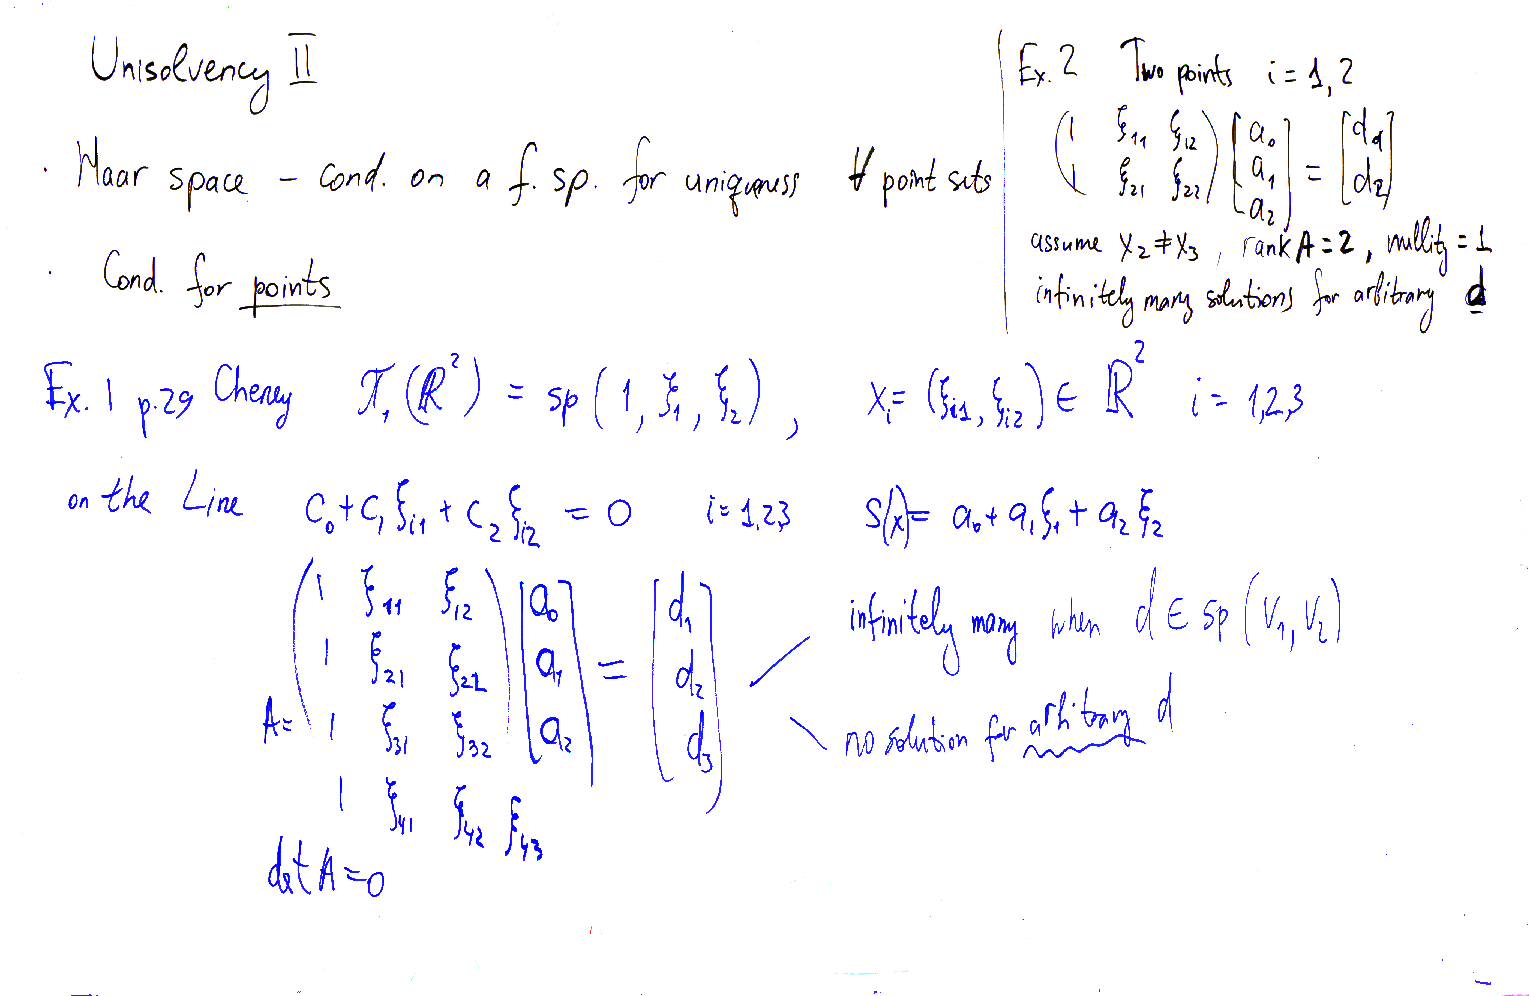 Unisolvency II
· Haar space – cond. on a f. sp. for uniqueness ∀ point sets
· Cond. for points
Ex. 2 Two points i = 1, 2
( 1 ξ₁₁ ξ₁₂ ) [ a₀ ] = [ d₁ ]
( 1 ξ₂₁ ξ₂₂ ) [ a₁ ] [ d₂ ]
[ a₂ ]
assume x₂ ≠ x₃, rank A = 2, nullity = 1
infinitely many solutions for arbitrary d
Ex. 1 p. 29 Cheney π₁(ℝ²) = sp(1, ξ₁, ξ₂), xᵢ = (ξᵢ₁, ξᵢ₂) ∈ ℝ² i = 1,2,3
on the Line c₀ + c₁ξᵢ₁ + c₂ξᵢ₂ = 0 i = 1,2,3 s(x) = a₀ + a₁ξ₁ + a₂ξ₂
( 1 ξ₁₁ ξ₁₂ ) [ a₀ ] [ d₁ ]
1 ξ₂₁ ξ₂₂ [ a₁ ] = [ d₂ ]
A = 1 ξ₃₁ ξ₃₂ [ a₂ ] [ d₃ ]
1 ξ₄₁ ξ₄₂ ξ₄₃
det A = 0
infinitely many when d ∈ sp(v₁, v₂)
no solution for arbitrary d